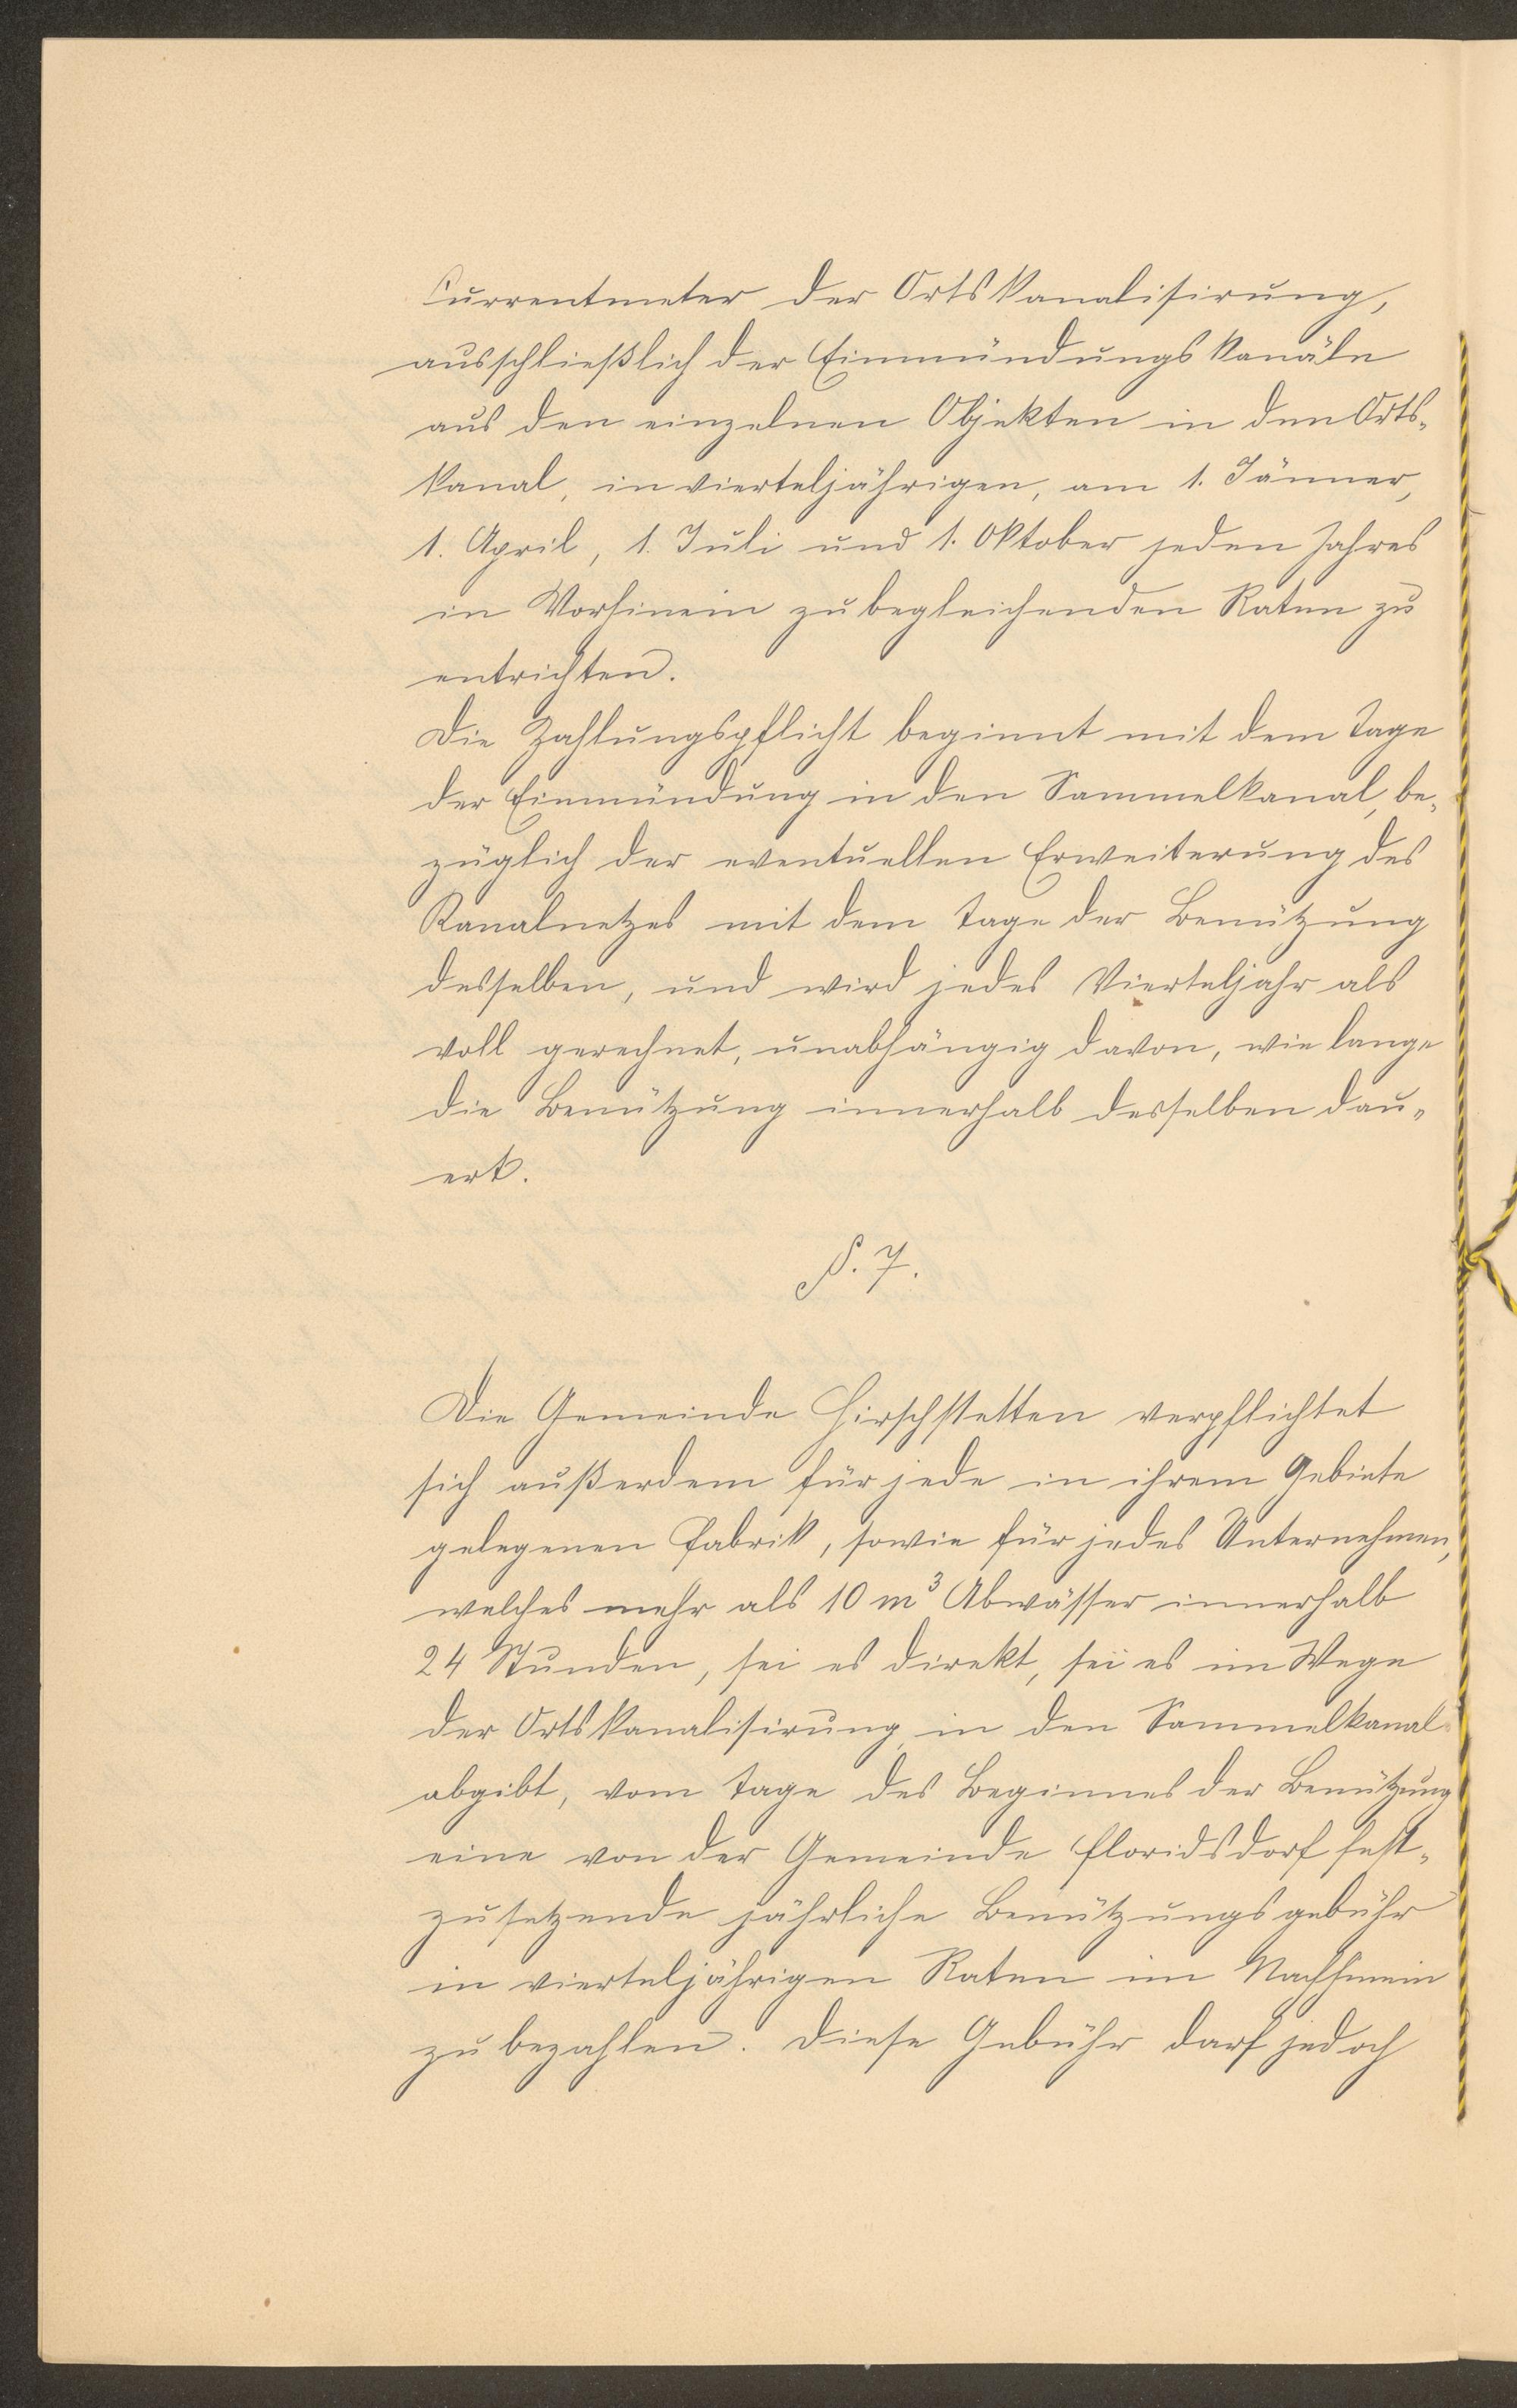 Currentmeter der Ortskanalisirung,
ausschließlich der Einmündungskanäle
aus den einzelnen Objekten in den Orts-
kanal, in vierteljährigen, am 1. Jänner,
1. April, 1. Juli und 1. Oktober jeden Jahres
in Vorhinein zu begleichenden Raten zu
entrichten.
Die Zahlungspflicht beginnt mit dem Tage
der Einmündung in den Sammelkanal, be-
züglich der eventuellen Erweiterung des
Kanalnetzes mit dem Tage der Benützung
desselben, und wird jedes Vierteljahr als
voll gerechnet, unabhängig davon, wie lange
die Benützung innerhalb desselben dau-
ert.
§. 7.
Die Gemeinde Hirschstetten verpflichtet
sich außerdem für jede in ihrem Gebiete
gelegenen Fabrik, sowie für jedes Unternehmen,
welches mehr als 10 m³ Abwässer innerhalb
24 Stunden, sei es direkt, sei es im Wege
der Ortskanalisirung, in den Sammelkanal
abgibt, vom Tage des Beginnes der Benützung
eine von der Gemeinde Floridsdorf fest-
zusetzende jährliche Benützungsgebühr
in vierteljährigen Raten im Nachhinein
zu bezahlen. Diese Gebühr darf jedoch